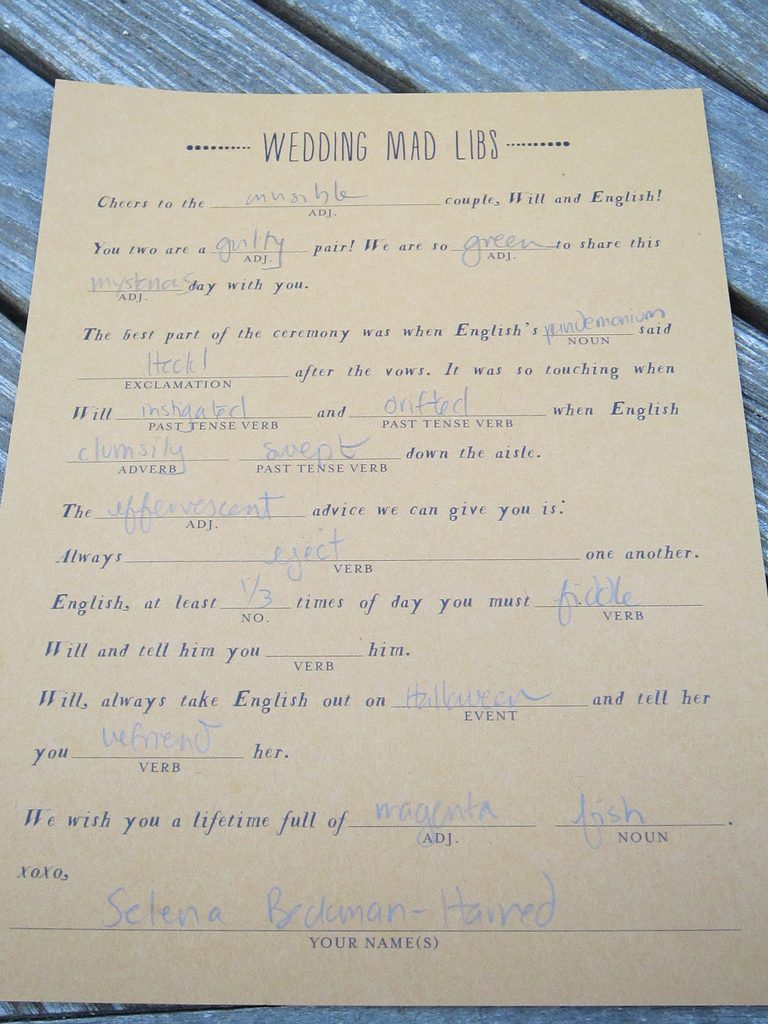 WEDDING MAD LIBS
Cheers to the invisible couple, Will and English!
ADJ.
You two are a guilty pair! We are so green to share this
ADJ. ADJ.
day with you.
ADJ.
The best part of the ceremony was when English's pandemonium said
NOUN
Heck! after the vows. It was so touching when
EXCLAMATION
Will instigated and drifted when English
PAST TENSE VERB PAST TENSE VERB
clumsily swept down the aisle.
ADVERB PAST TENSE VERB
The effervescent advice we can give you is:
ADJ.
Always eject one another.
VERB
English, at least 1/3 times of day you must fiddle
NO. VERB
Will and tell him you him.
VERB
Will, always take English out on Halloween and tell her
EVENT
you befriend her.
VERB
We wish you a lifetime full of magenta fish.
ADJ. NOUN
xoxo,
Selena Beckman-Harned
YOUR NAME(S)